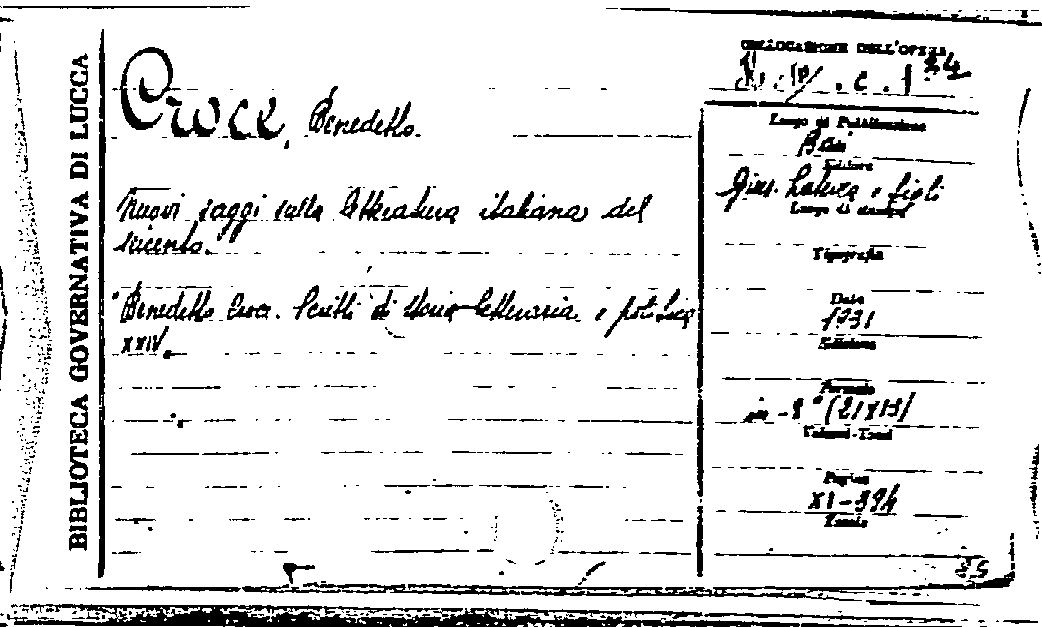 BIBLIOTECA GOVERNATIVA DI LUCCA
Croce, Benedetto.
Nuovi saggi sulla letteratura italiana del
seicento.
Benedetto Croce. Scritti di storia letteraria e politica
XXIV.
COLLOCAZIONE DELL'OPERA
Luogo di Pubblicazione
Bari
Editore
Gius. Laterza e figli
Luogo di stampa
Tipografia
Data
1931
Edizione
Formato
in-8° (21X13)
Volumi-Tomi
Pagine
XI-394
Tavole